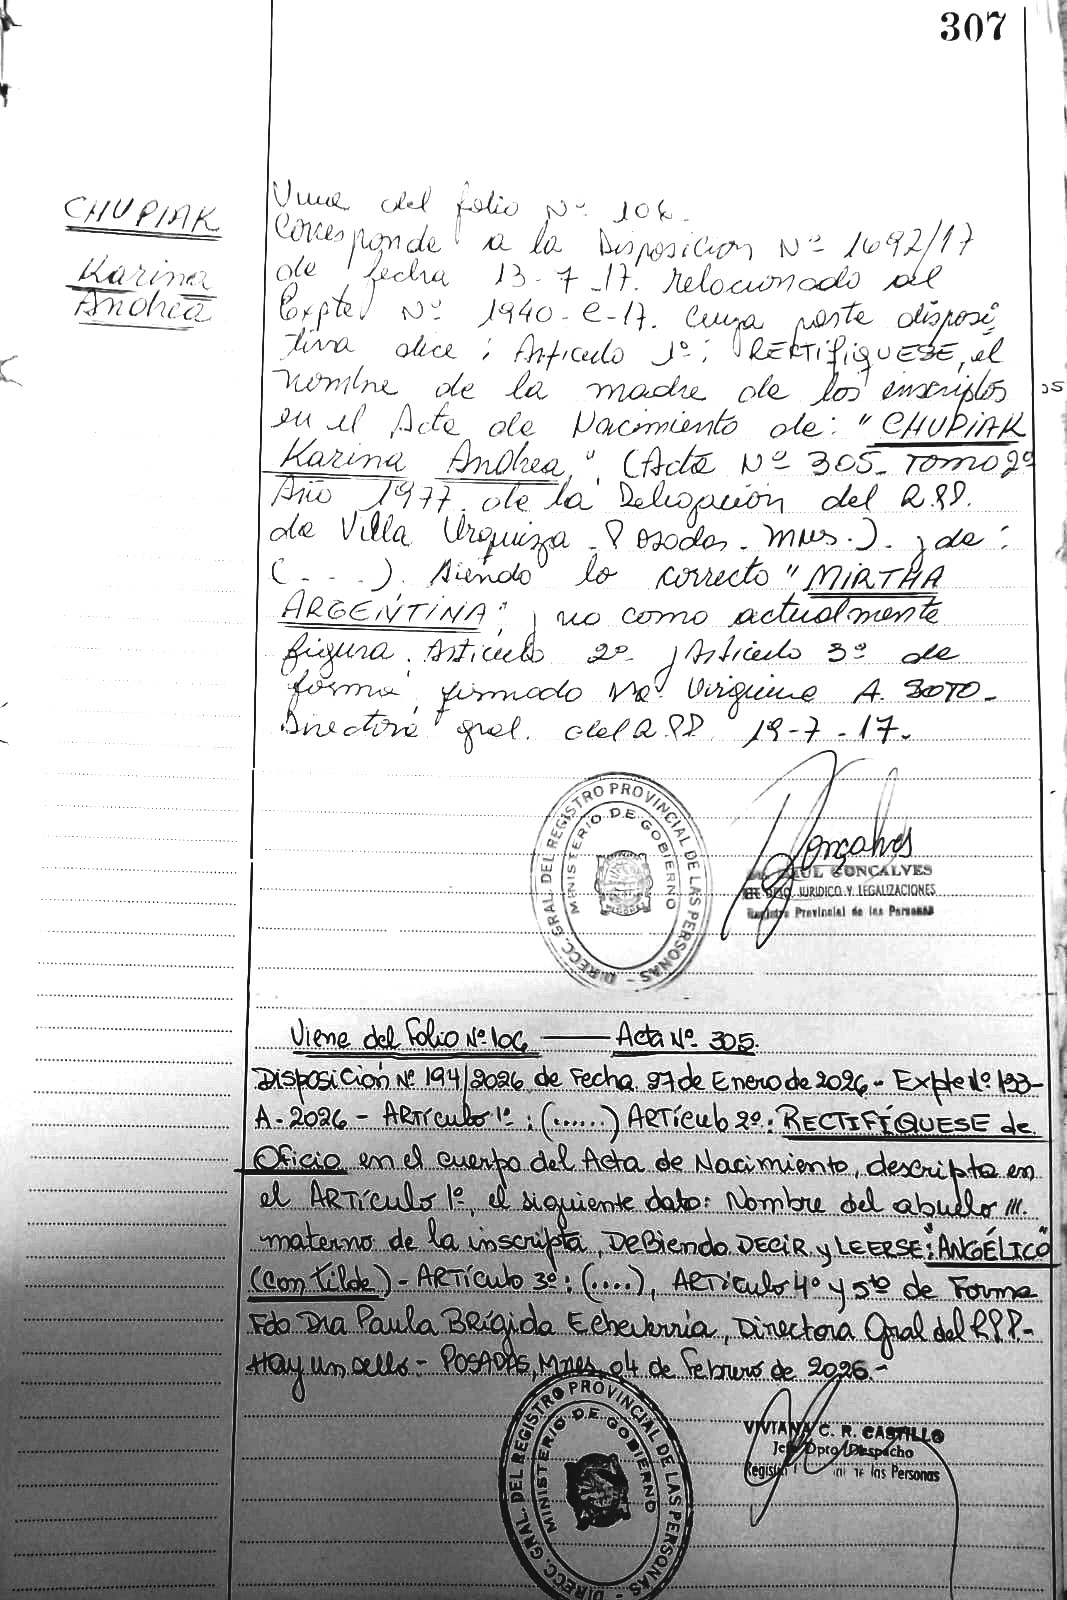 307
CHUPIAK
Karina
Andrea
Viene del folio Nº 106.
Corresponde a la Disposicion Nº 1692/17
de fecha 13-7-17. relacionado al
Expte Nº 1940-C-17. Cuya parte disposi
tiva dice: Articulo 1º: RECTIFIQUESE, el
nombre de la madre de los inscriptos
en el Acta de Nacimiento de: "CHUPIAK
Karina Andrea", (Acta Nº 305- Tomo 2º
Año 1977. de la Delegación del R.P.P.
de Villa Urquiza - Posadas - Mnes.). y de:
(...). Siendo lo correcto "MIRTHA
ARGENTINA" y no como actualmente
figura. Articulo 2º y Articulo 3º de
forma, firmado Ma. Virginia A. SOTO-
Directora gral. del R.P.P. 19-7-17.
DIRECC. GRAL. DEL REGISTRO PROVINCIAL DE LAS PERSONAS -
MINISTERIO DE GOBIERNO
Gonçalves
RAUL GONCALVES
JURIDICO Y LEGALIZACIONES
Registro Provincial de las Personas
Viene del Folio Nº 106 ——— Acta Nº 305.
Disposición Nº 194/2026 de Fecha 27 de Enero de 2026- Expte Nº 193-
A-2026 - ARTículo 1º: (......) ARTículo 2º: RECTIFÍQUESE de
Oficio en el cuerpo del Acta de Nacimiento, descripta en
el ARTículo 1º, el siguiente dato: Nombre del abuelo ///.
materno de la inscripta, DeBiendo DECIR y LEERSE: "ANGÉLICO"
(Con Tilde) - ARTículo 3º: (....), ARTículo 4º y 5to de Forma
Fdo Dra Paula BRígida Echeverria, Directora Gral del R.P.P.-
Hay un sello - POSADAS, Mnes, 04 de Febrero de 2026.-
DIRECC. GRAL. DEL REGISTRO PROVINCIAL DE LAS PERSONAS -
MINISTERIO DE GOBIERNO
VIVIANA C. R. CASTILLO
Jefe Dpto Despacho
de las Personas